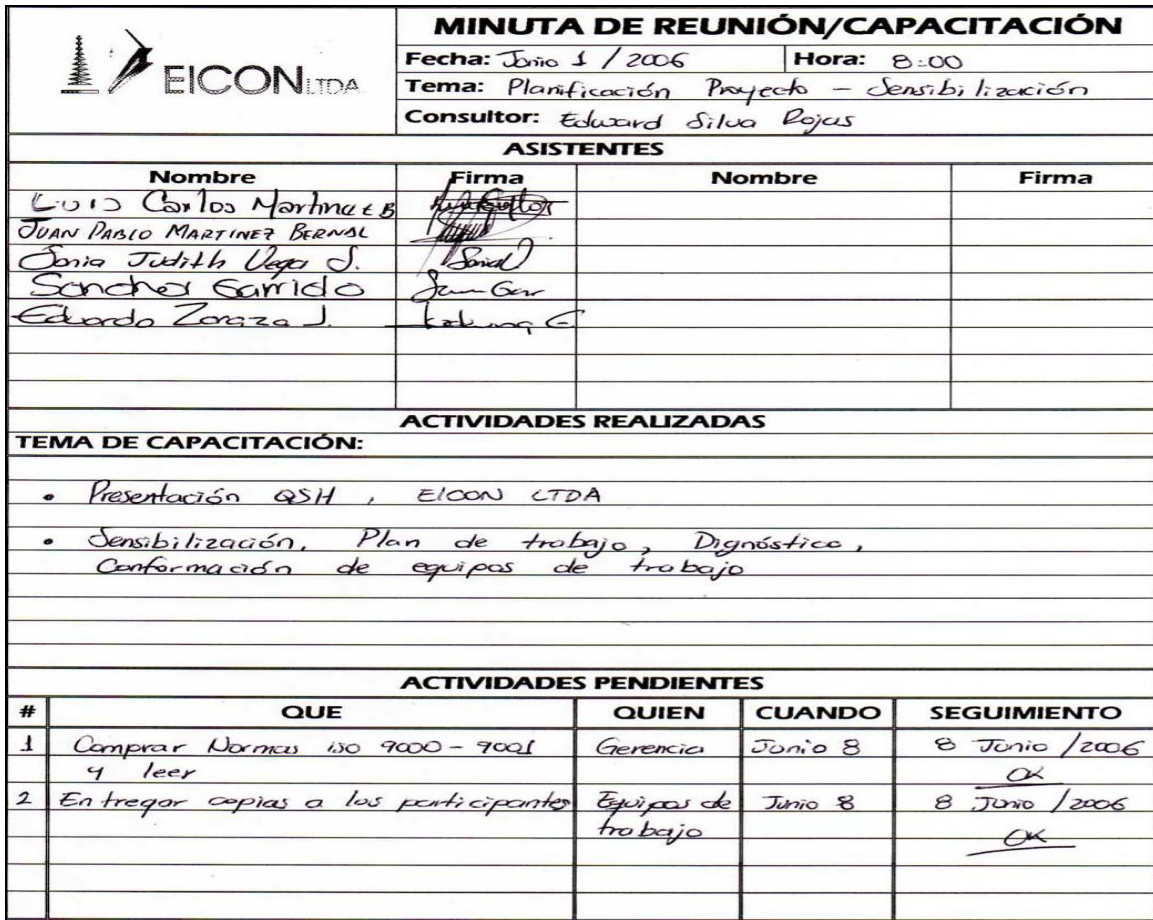 EICON LTDA
MINUTA DE REUNIÓN/CAPACITACIÓN
Fecha: Junio 1 / 2006 Hora: 8:00
Tema: Planificación Proyecto - Sensibilización
Consultor: Edward Silva Rojas
ASISTENTES
Nombre Firma Nombre Firma
Luis Carlos Martinez B
JUAN PABLO MARTINEZ BERNAL
Sonia Judith Vega J. Sonia
Sanchez Garrido
Eduardo J.
ACTIVIDADES REALIZADAS
TEMA DE CAPACITACIÓN:
• Presentación QSH, EICON LTDA
• Sensibilización, Plan de trabajo, Dignóstico,
Conformación de equipos de trabajo
ACTIVIDADES PENDIENTES
# QUE QUIEN CUANDO SEGUIMIENTO
1 Comprar Normas iso 9000 - 9001 Gerencia Junio 8 8 Junio /2006
y leer OK
2 Entregar copias a los participantes Equipos de Junio 8 8 Junio /2006
trabajo OK